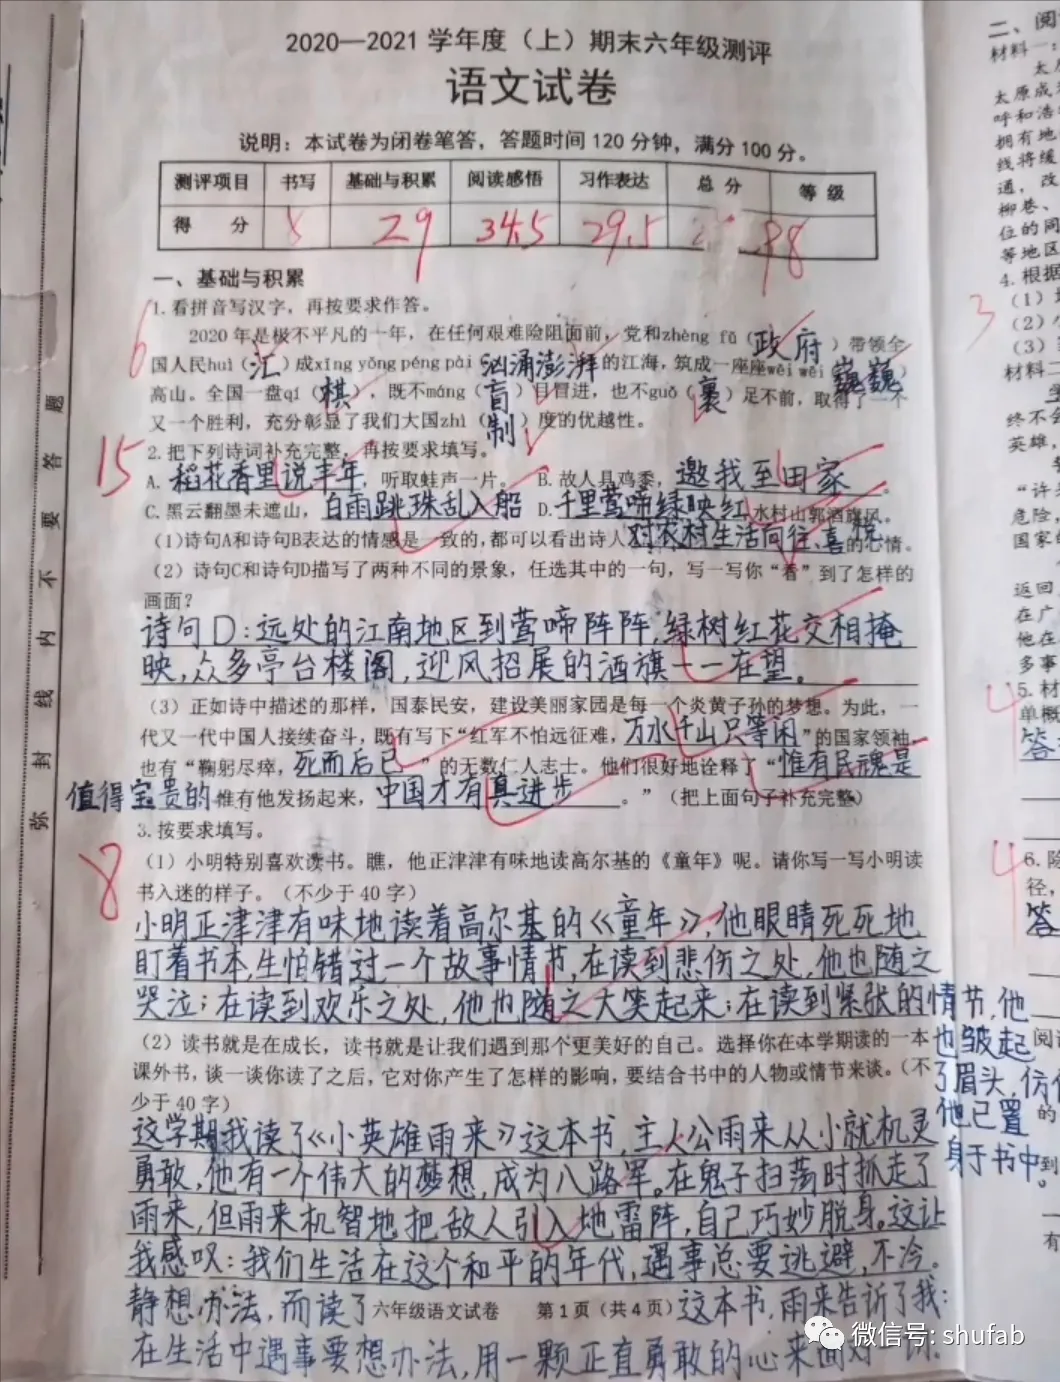 2020—2021 学年度（上）期末六年级测评
语文试卷
说明：本试卷为闭卷笔答，答题时间 120 分钟，满分 100 分。
测评项目 书写 基础与积累 阅读感悟 习作表达 总 分 等 级
得 分 8 29 34.5 29.5 98
一、基础与积累
1. 看拼音写汉字，再按要求作答。
6
2020 年是极不平凡的一年，在任何艰难险阻面前，党和zhèng fǔ（政府）带领全
国人民huì（汇）成xīng yǒng péng pài 汹涌澎湃的江海，筑成一座座wēi wēi（巍巍）
高山。全国一盘qí（棋），既不máng（盲）目冒进，也不guǒ（裹）足不前，取得了一个
又一个胜利，充分彰显了我们大国zhì（制）度的优越性。
2. 把下列诗词补充完整，再按要求填写。
15
A. 稻花香里说丰年，听取蛙声一片。 B. 故人具鸡黍，邀我至田家。
C. 黑云翻墨未遮山，白雨跳珠乱入船 D. 千里莺啼绿映红，水村山郭酒旗风。
（1）诗句A和诗句B表达的情感是一致的，都可以看出诗人对农村生活向往、喜悦的心情。
（2）诗句C和诗句D描写了两种不同的景象，任选其中的一句，写一写你“看”到了怎样的
画面？
诗句D：远处的江南地区到莺啼阵阵，绿树红花交相掩
映，众多亭台楼阁，迎风招展的酒旗一一在望。
（3）正如诗中描述的那样，国泰民安，建设美丽家园是每一个炎黄子孙的梦想。为此，一
代又一代中国人接续奋斗，既有写下“红军不怕远征难，万水千山只等闲”的国家领袖，
也有“鞠躬尽瘁，死而后已”的无数仁人志士。他们很好地诠释了“惟有民魂是
值得宝贵的，惟有他发扬起来，中国才有真进步。”（把上面句子补充完整）
3. 按要求填写。
8
（1）小明特别喜欢读书。瞧，他正津津有味地读高尔基的《童年》呢。请你写一写小明读
书入迷的样子。（不少于 40 字）
小明正津津有味地读着高尔基的《童年》，他眼睛死死地
盯着书本，生怕错过一个故事情节，在读到悲伤之处，他也随之
哭泣；在读到欢乐之处，他也随之大笑起来；在读到紧张的情节，他
也皱起
了眉头，仿佛
他已置
身于书中。
（2）读书就是在成长，读书就是让我们遇到那个更美好的自己。选择你在本学期读的一本
课外书，谈一谈你读了之后，它对你产生了怎样的影响，要结合书中的人物或情节来谈。（不
少于 40 字）
这学期我读了《小英雄雨来》这本书，主人公雨来从小就机灵
勇敢，他有一个伟大的梦想，成为八路军。在鬼子扫荡时抓走了
雨来，但雨来机智地把敌人引入地雷阵，自己巧妙脱身。这让
我感叹：我们生活在这个和平的年代，遇事总要逃避，不冷
静想办法，而读了这本书，雨来告诉了我：
在生活中遇事要想办法，用一颗正直勇敢的心来面对一切。
六年级语文试卷 第 1 页（共 4 页）
弥 封 线 内 不 要 答 题
二、阅
材料一：
太原
太原成
呼和浩
拥有地
线将缓
通，改
柳巷、
位的同
等地区
4. 根据
3
（1）
（2）
（3）
材料二
终不会
英雄，
“许
危险，
国家的
返回
在广
他在
多事
4
5. 材
单概
答
4
6. 除
径，
答
阅
的
到
有
微信号: shufab